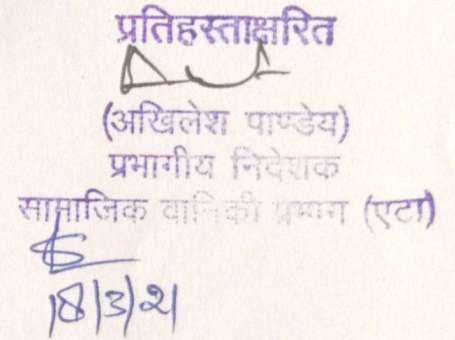 प्रतिहस्ताक्षरित
(अखिलेश पाण्डेय)
प्रभागीय निदेशक
सामाजिक वानिकी प्रभाग (एटा)
18/3/21